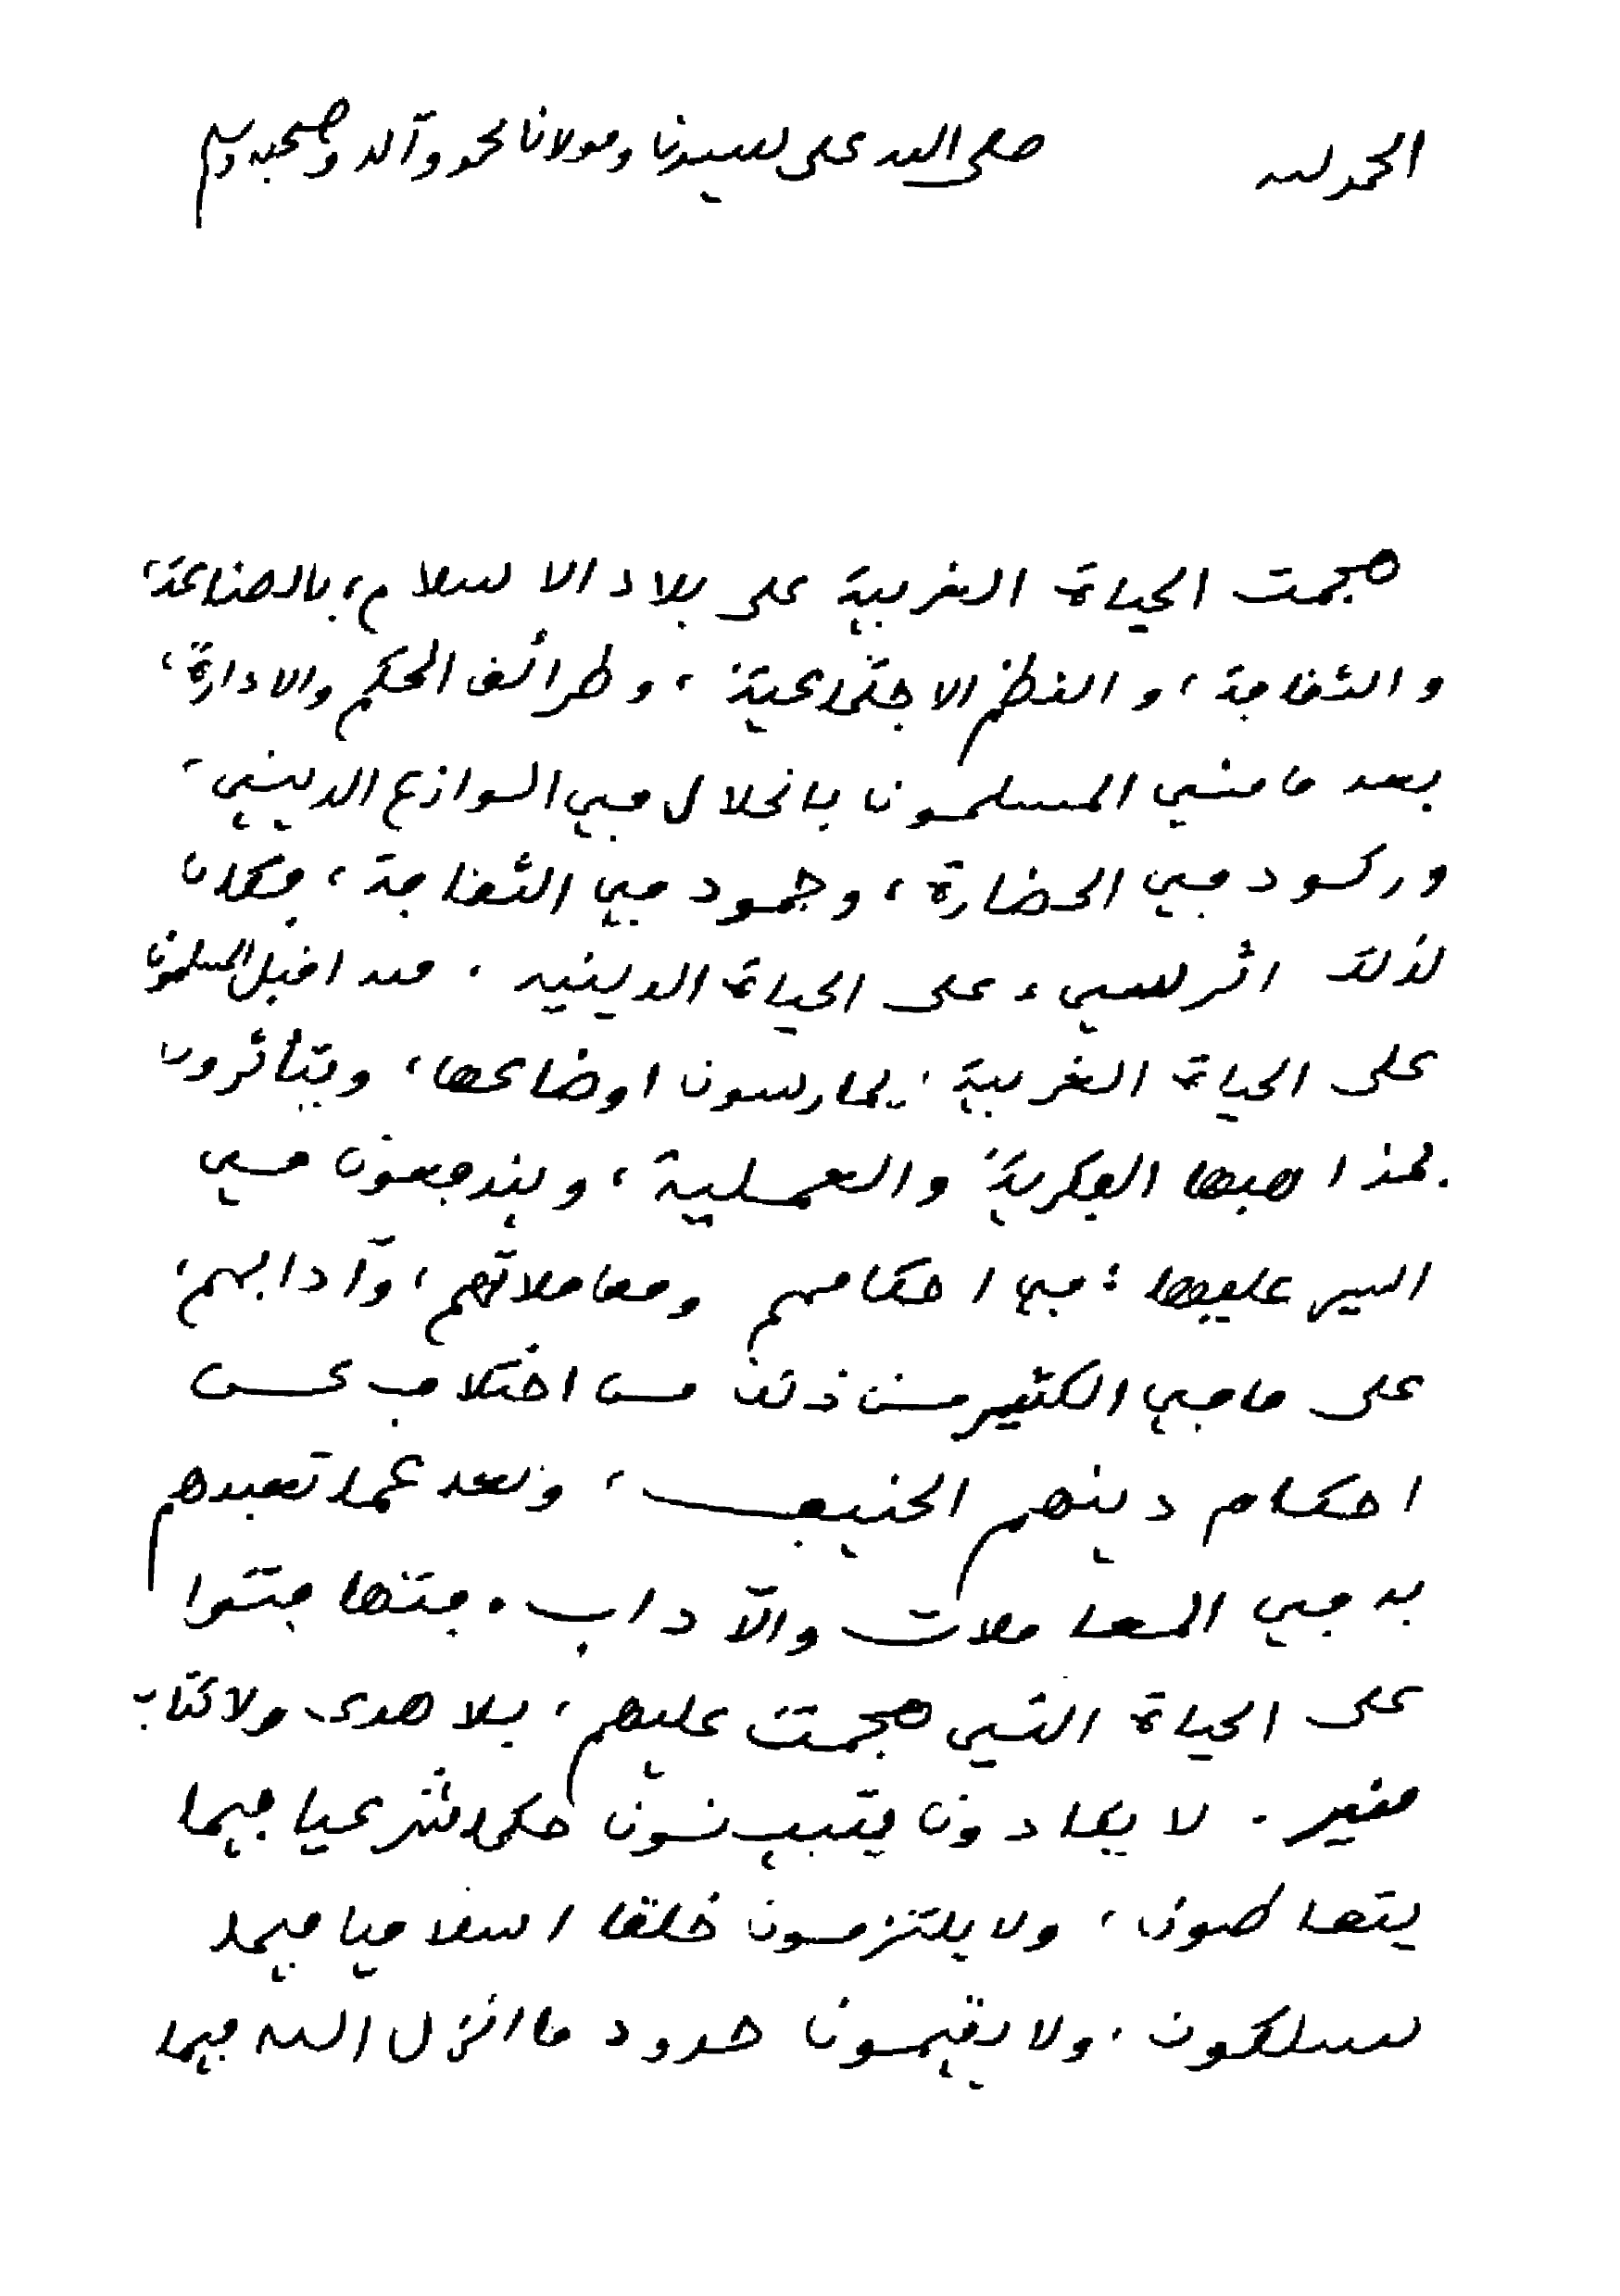 الحمد لله صلى الله على سيدنا ومولانا محمد وآله وصحبه وسلم
هجمت الحياة الغربية على بلاد الاسلام، بالصناعة،
والثقافة، والنظم الاجتماعية، وطرائق الحكم والادارة،
بعد ما مني المسلمون بانحلال في الوازع الديني،
وركود في الحضارة، وجمود في الثقافة، فكان
لذلك اثر سيء على الحياة الدينية. فقد اقبل المسلمون
على الحياة الغربية: يمارسون اوضاعها، ويتأثرون
بمذاهبها الفكرية والعملية، ويندفعون في
السير عليها: في احكامهم ومعاملاتهم، وآدابهم،
على ما في الكثير من ذلك من اختلاف عن
احكام دينهم الحنيف، وبعد عما تعبدهم
به في المعاملات والآداب. فتهافتوا
على الحياة التي هجمت عليهم، بلا هدى ولا كتاب
منير. لا يكادون يتبينون حكما شرعيا فيما
يتعاطون، ولا يلتزمون خلقا اسلاميا فيما
يسلكون، ولا يقيمون حدود ما انزل الله فيما